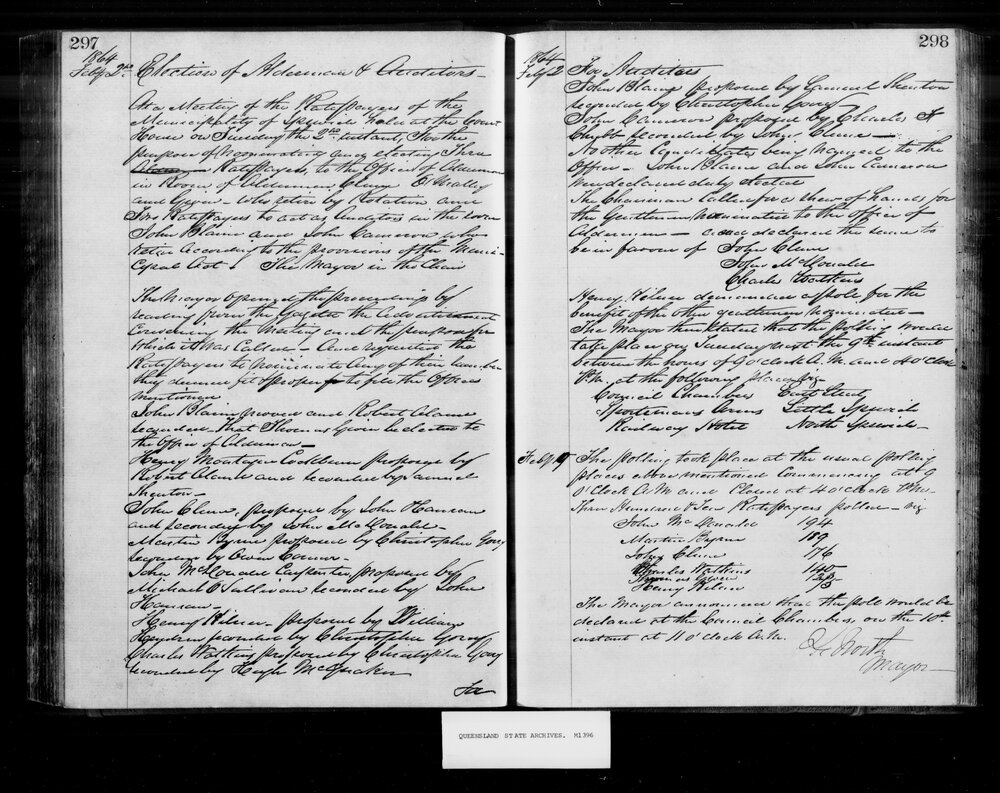 297
1864
Feby 2nd
Election of Aldermen & Auditors
At a Meeting of the Ratepayers of the
Municipality of Ipswich held at the Court
House on Tuesday the 2nd instant, for the
purpose of nominating and electing Three
Ratepayers, to the Office of Aldermen
in Room of Aldermen Clune O'Malley
and Given - who retire by Rotation and
Two Ratepayers to act as Auditors in the room
John Blaine and John Cameron who
retire according to the provisions of the Muni-
cipal Act. The Mayor in the Chair
The Mayor opened the proceedings by
reading from the Gazette the Advertisement
Convening the Meeting and the purpose for
which it was Called - And requested the
Ratepayers to nominate any of their number
they deemed fit & proper to fill the Offices
mentioned
John Blaine moved and Robert Adams
seconded That Thomas Given be elected to
the Office of Alderman -
Henry Montague Cockburn proposed by
Robert Adams and seconded by Samuel
Shenton -
John Clune, proposed by John Hanran
and seconded by John McDonald -
Martin Byrne proposed by Christopher Gorry
seconded by Owen Connor -
John McDonald Carpenter proposed by
Michael O'Sullivan seconded by John
Hanran -
Henry Kilner. proposed by William
Hayden seconded by Christopher Gorry
Charles Watkins proposed by Christopher Gorry
seconded by Hugh McQuaker
For
298
1864
Feby 2
For Auditors
John Blaine proposed by Samuel Shenton
seconded by Christopher Gorry
John Cameron proposed by Charles F
Chubb seconded by John Clune -
No other Candidates being nominated to the
Office - John Blaine and John Cameron
were declared duly elected
The Chairman Called for a show of hands for
the Gentlemen nominated to the office of
Aldermen - and declared the same to
be in favour of John Clune
John McDonald
Charles Watkins
Henry Kilner demanded a pole for the
benefit of the other gentlemen nominated -
The Mayor then stated that the polling would
take place on Tuesday next the 9th instant
between the hours of 9 o'clock A.M. and 4 o'Clock
P.M. at the following places viz
Council Chambers East Street
Sportsmans Arms Little Ipswich
Railway Hotel North Ipswich -
Feby 9
The polling took place at the usual polling
places above mentioned Commencing at 9
o'Clock A.M and Closed at 4 o'clock P.M.
Three Hundred & Ten Ratepayers polled - viz
John McDonald 194
Martin Byrne 189
John Clune 176
Charles Watkins 145
Thomas Given
Henry Kilner
The Mayor announced that the pole would be
declared at the Council Chambers on the 10th
instant at 11 o'clock A.M.
North
Mayor -
QUEENSLAND STATE ARCHIVES. M1396